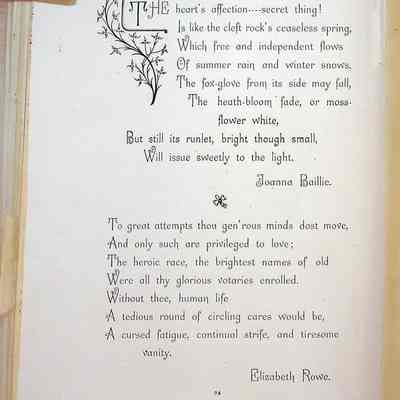 THE heart's affection----secret thing!
Is like the cleft rock's ceaseless spring,
Which free and independent flows
Of summer rain and winter snows.
The fox-glove from its side may fall,
The heath-bloom fade, or moss-
flower white,
But still its runlet, bright though small,
Will issue sweetly to the light.
Joanna Baillie.
To great attempts thou gen'rous minds dost move,
And only such are privileged to love;
The heroic race, the brightest names of old
Were all thy glorious votaries enrolled.
Without thee, human life
A tedious round of circling cares would be,
A cursed fatigue, continual strife, and tiresome
vanity.
Elizabeth Rowe.